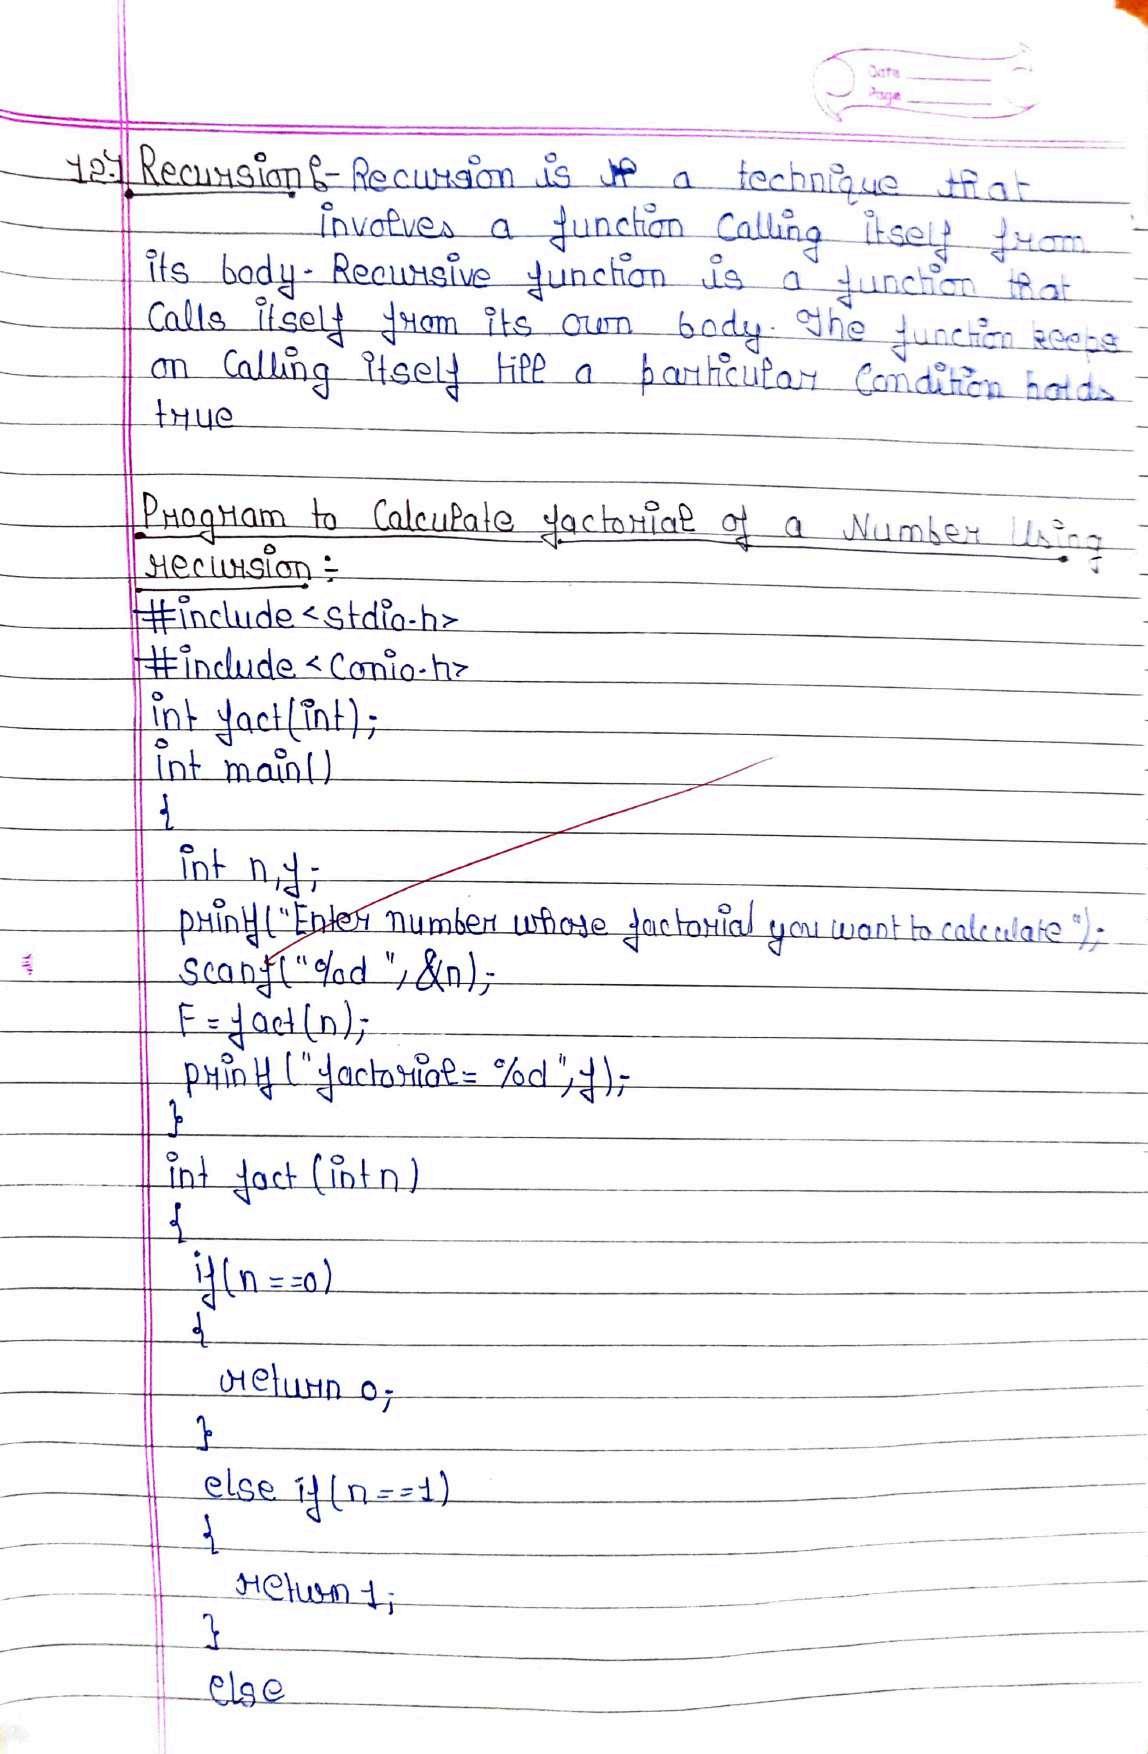 Date
Page
12.7 Recursion :- Recursion is a technique that
involves a function calling itself from
its body. Recursive function is a function that
Calls itself from its own body. The function keeps
on Calling itself till a particular Condition holds
true
Program to Calculate factorial of a Number Using
recursion :-
#include <stdio.h>
#include <Conio.h>
int fact(int);
int main()
{
int n,f;
printf("Enter number whose factorial you want to calculate");
scanf("%d", &n);
F = fact(n);
printf("factorial= %d",f);
}
int fact (int n)
{
if(n==0)
{
return 0;
}
else if(n==1)
{
return 1;
}
else